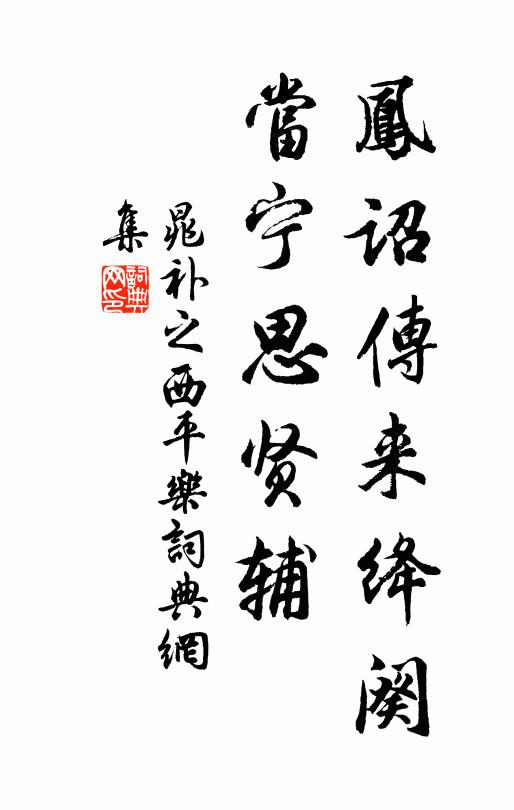 鳳詔傳来绛阕
當宁思贤辅
晁补之西平樂詞典網
集
詞典网印